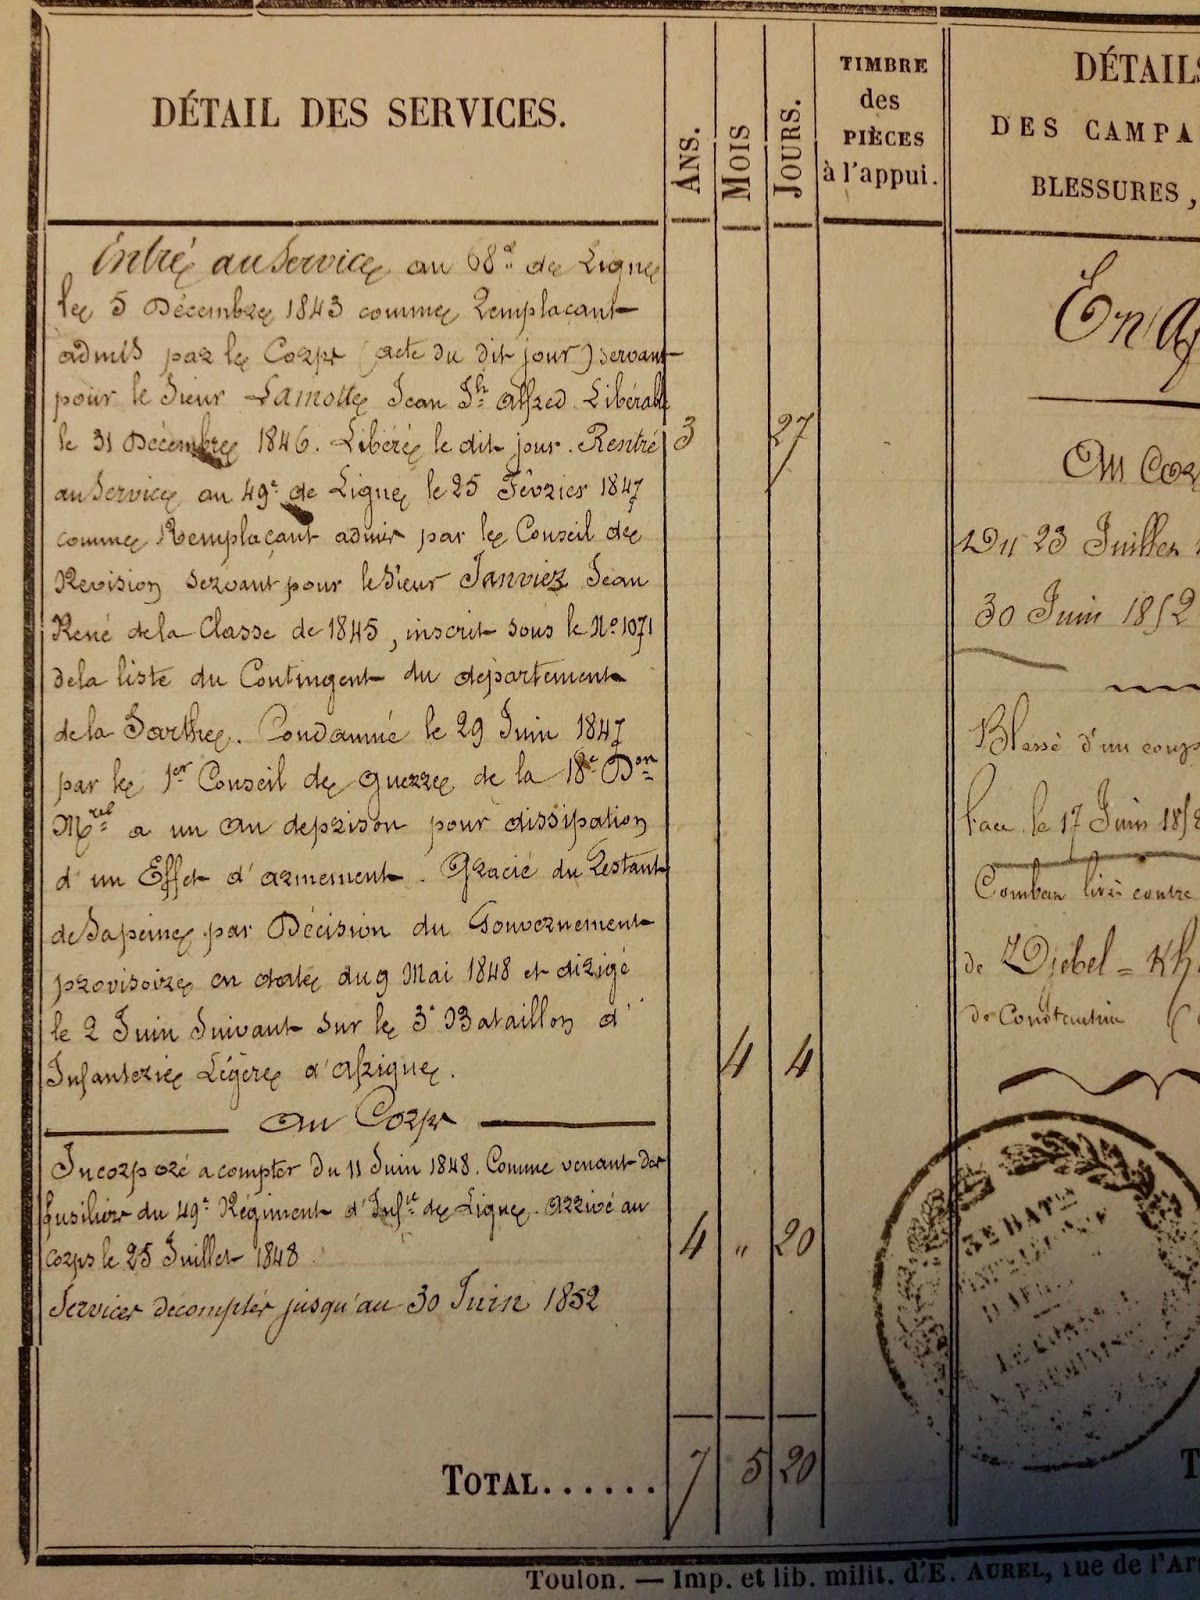 DÉTAIL DES SERVICES.
ANS.
MOIS
JOURS.
TIMBRE
des
PIÈCES
à l'appui.
Entré au Service au 68e de Ligne
le 5 Décembre 1843 comme Remplaçant
admis par le Corps (acte du dit jour) servant
pour le Sieur Lamotte Jean Jh Alfred. Libérable
le 31 Décembre 1846. Libéré le dit jour. Rentré 3 27
au Service au 49e de Ligne le 25 Février 1847
comme Remplaçant admis par le Conseil de
Revision servant pour le Sieur Janvier Jean
René de la Classe de 1845, inscrit sous le No 1071
de la liste du Contingent du département
de la Sarthe. Condamné le 29 Juin 1847
par le 1er Conseil de guerre de la 18e Don
Mre a un an de prison pour dissipation
d'un Effet d'armement. Gracié du Restant
de Sa peine par Décision du Gouvernement
provisoire en date du 9 Mai 1848 et dirigé
le 2 Juin Suivant sur le 3e Bataillon d'
Infanterie Légère d'Afrique. 4 4
Au Corps
Incorporé a compter du 11 Juin 1848. Comme venant des
fusiliers du 49e Régiment d'Infie de Ligne. Arrivé au
corps le 25 Juillet 1848 4 " 20
Services décomptés jusqu'au 30 Juin 1852
TOTAL...... 7 5 20
DÉTAILS
DES CAMPA
BLESSURES,
Au Cor
Du 23 Juillet
30 Juin 1852
Blessé d'un coup
face le 17 Juin 185
Combat livré contre
de Djebel = Kh
de Constantine
3E BATN
Toulon. — Imp. et lib. milit. d'E. AUREL, rue de l'Ar